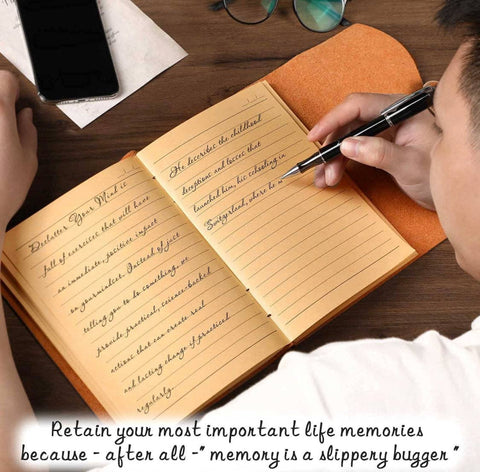 Declutter Your Mind is
full of exercises that will have
an immediate, positive impact
on yourmindset. Instead of just
telling you to do something, we
provide practical, science-backed
actions that can create real
and lasting change if practiced
regularly.
He describes the childhood
deceptions and losses that
launched him, his schooling in
Switzerland, where he w
Retain your most important life memories
because - after all -" memory is a slippery bugger "